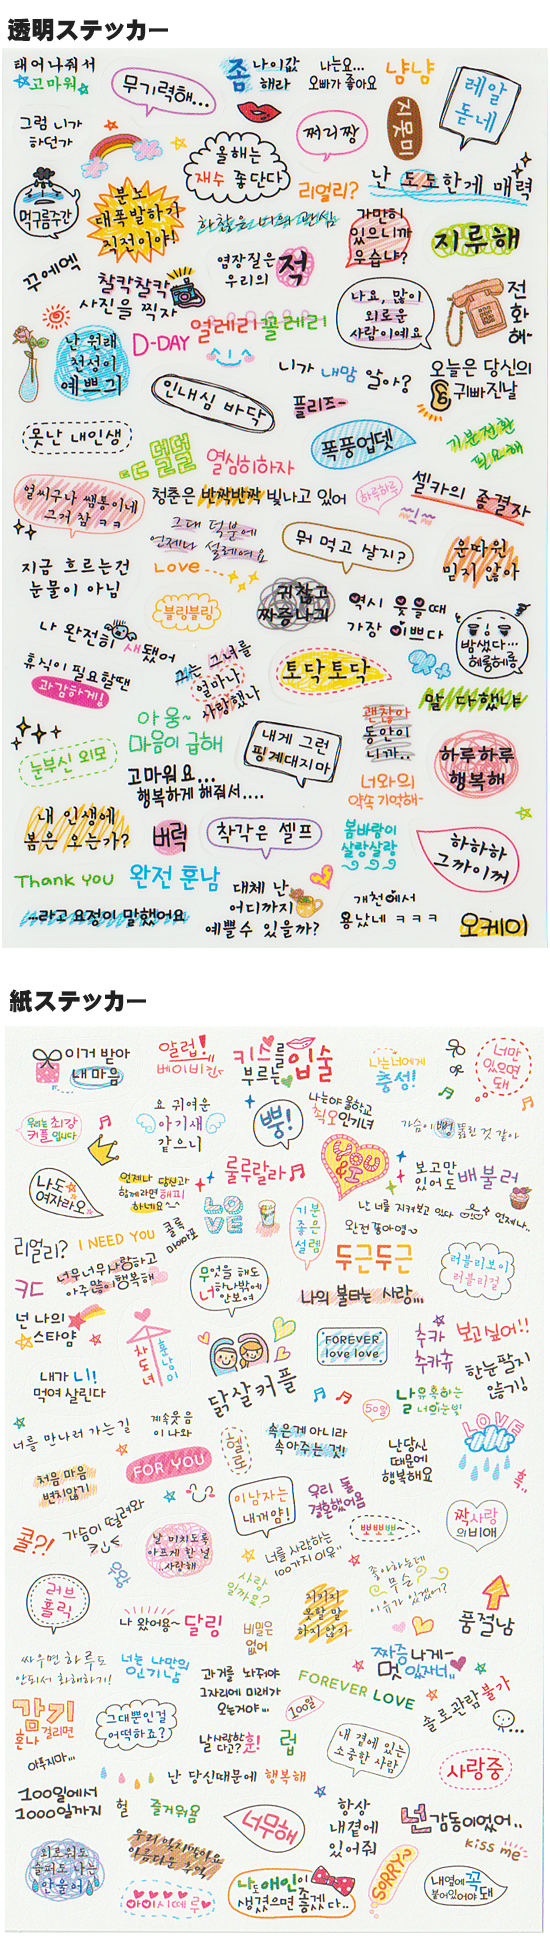 透明ステッカー
태어나줘서
고마워
무기력해...
좀 나이값
해라
나는요...
오빠가 좋아요
냥냥
레알
돋네
그럼 니가
하던가
올해는
재수 좋단다
쩌리짱
지못미
먹구름주간
분노
대폭발하기
직전이야!
리얼리?
난 도도한게 매력
하찮은 너의 관심
가만히
있으니까
우습냐?
지류해
꾸에엑
찰칵찰칵
사진을 찍자
염장질은
우리의 적
나요, 많이
외로운
사람이예요
전
화
해~
난 원래
천성이
예쁘긔
D-DAY
얼레리꼴레리
니가 내맘 알아?
오늘은 당신의
귀빠진날
인내심 바닥
플리즈~
못난 내인생
덜덜
열심히하자
폭풍업뎃
기분전환
필요해
얼씨구나 쌤통이네
그거 참 ㅋㅋ
청춘은 반짝반짝 빛나고 있어
하루하루
셀카의 종결자
그대 덕분에
언제나 설레여요
뭐 먹고 살지?
운따윈
믿지 않아
지금 흐르는건
눈물이 아님
Love
블링블링
귀찮고
짜증나긔
역시 웃을때
가장 이쁘다
나 완전히 새됐어
밤샜다...
헤롱헤롱
휴식이 필요할땐
과감하게!
나는 그녀를
얼마나
사랑했나
토닥토닥
말 다했냐
눈부신 외모
아웅~
마음이 급해
내게 그런
핑계대지마
괜찮아
동안이
니까..
하루하루
행복해
고마워요...
행복하게 해줘서....
너와의
약속 기억해~
내 인생에
봄은 오는가?
버럭
착각은 셀프
봄바람이
살랑살랑
하하하
그까이꺼
Thank you
완전 훈남
대체 난
어디까지
예쁠수 있을까?
개천에서
용났네 ㅋㅋㅋ
...라고 요정이 말했어요
오케이
紙ステッカー
이거 받아
내 마음
알럽!
베이비컨
키스를
부르는 입술
나는너에게
충성!
너만
있으면
돼
우리는 최강
커플입니다
요 귀여운
아기새
같으니
뿅!
나는야 울학교
최고인기녀
가슴이 뻥 뚫린 것 같아
나도
여자라오
언제나 당신과
함께라면 해피
하네요~
룰루랄라
YOU
& I
보고만
있어도 배불러
LOVE
기분
좋은
설렘
난 너를 지켜보고 있다
언제나..
완전좋아염~
리얼리?
I NEED YOU
콜록
두근두근
러블리보이
러블리걸
ㅋㄷ
너무너무사랑하고
아주많이행복해
무엇을 해도
너하나밖에
안보여
나의 불타는 사랑...
넌 나의
스타얌
차도녀
훈남이
FOREVER
love love
추카
추카츄
보고싶어!!
내가 니!
먹여 살린다
닭살커플
한눈팔지
않기!
50일
날유혹하는
너의눈빛
너를 만나러 가는길
계속웃음
이 나와
헐
속은게 아니라
속아주는 것!
LOVE
난당신
때문에
행복해요
처음 마음
변치않기
FOR YOU
이남자는
내꺼얌!
우리
결혼했어용
흑..
쿨?!
가슴이 떨려와
날 미치도록
아프게 한 널
..사랑해
뽀뽀뽀뽀~
짝사랑
의비애
너를 사랑하는
100가지 이유
우왕
사랑
일까요?
좋아하는데
무슨
이유가 있겠어?
러브
홀릭
나 왔어용~ 달링
비밀은
없어
지키지
못할 말
하지 않기
품절남
싸우면 하루도
안되서 화해하기!
너는 나만의
인기남
과거를 놔줘야
그자리에 미래가
오는거야...
짜증나게~
멋있자너..
FOREVER LOVE
솔로관람불가
감기
걸리면
혼나
아프지마...
그대뿐인걸
어떡하죠?
100일
날사랑한
다고? 흥!
럽
내 곁에 있는
소중한 사람
사랑중
난 당신때문에 행복해
100일에서
1000일까지
헐
즐거워용
너무해
항상
내곁에
있어줘
넌감동이었어..
kiss me
외로워도
슬퍼도 나는
안울어
우리 잊지말아요
아름다운 추억
아이시떼루
나도애인이
생겼으면 좋겠다..
SORRY~
내옆에 꼭
붙어있어야 돼